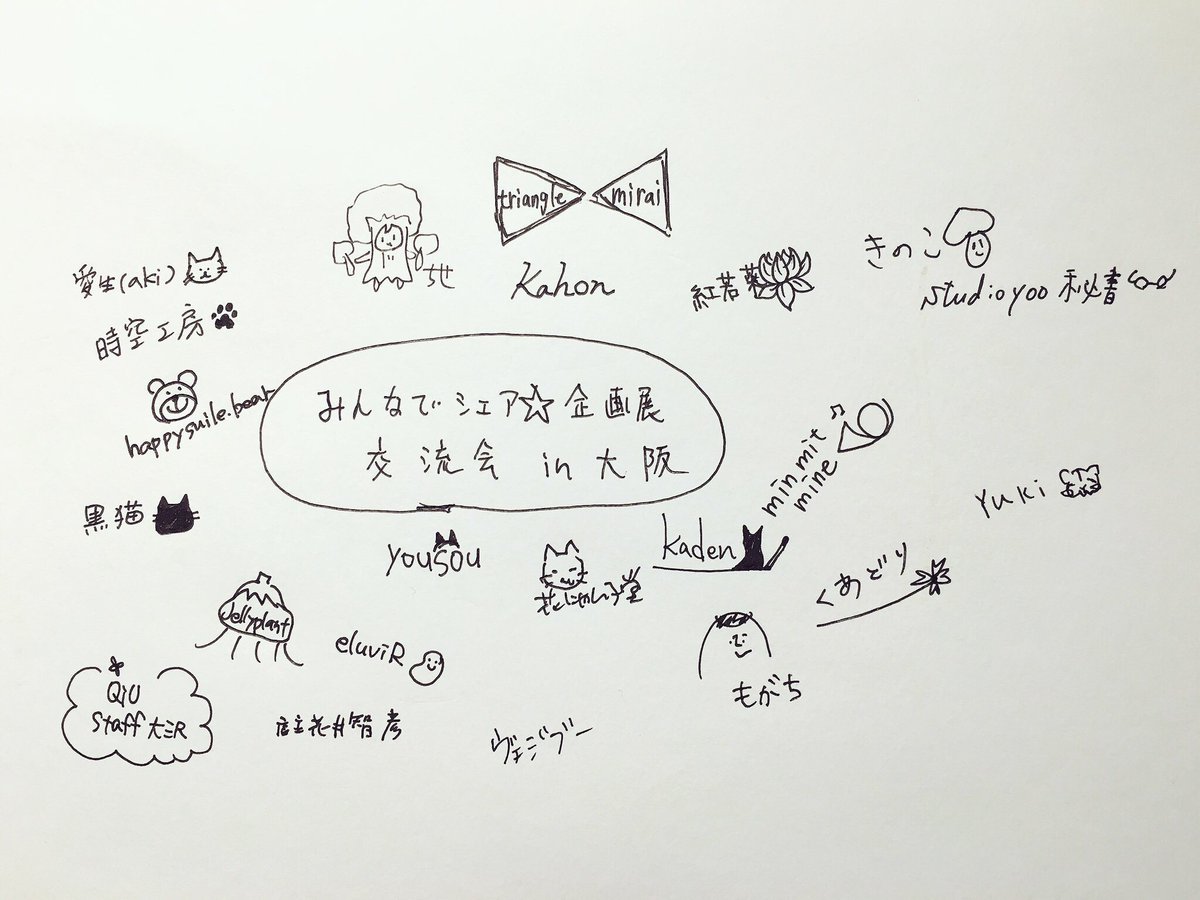 triangle mirai
Kahon
きのこ
studioyoo 秘書
愛生(aki)
時空工房
happysmile.bear
みんなでシェア☆企画展
交流会 in 大阪
黒猫
yousou
kaden
min mit
mine
Yuki
くあどり
Jellyplant
eluviR
もがち
QiU
Staff
店主 花井智彦
ヴェジブー